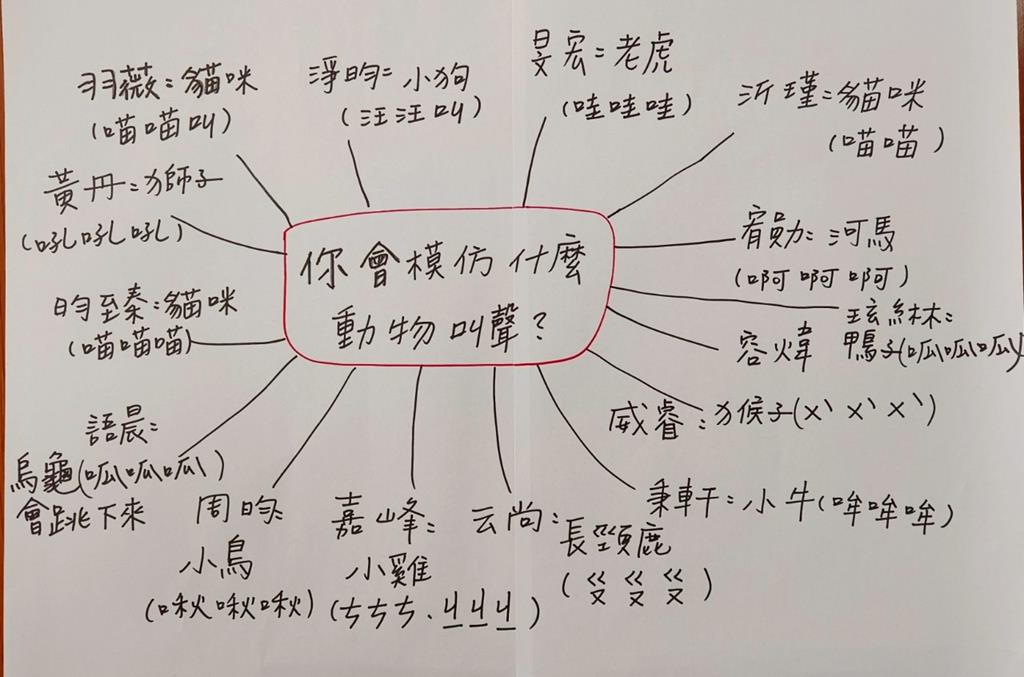 你會模仿什麼
動物叫聲？
羽薇：貓咪
（喵喵叫）
淨昀：小狗
（汪汪叫）
旻宏：老虎
（哇哇哇）
沂瑾：貓咪
（喵喵）
黃丹：獅子
（吼吼吼）
宥勛：河馬
（啊啊啊）
昀臻：貓咪
（喵喵喵）
玹綝：
鴨子（呱呱呱）
容煒
威睿：猴子（ㄨˋㄨˋㄨˋ）
語晨：
烏龜（呱呱呱）
會跳下來
秉軒：小牛（哞哞哞）
周昀：
小鳥
（啾啾啾）
嘉峰：
小雞
（ㄘㄘㄘ、ㄐㄐㄐ）
云尚：
長頸鹿
（ㄍㄡ ㄍㄡ ㄍㄡ）